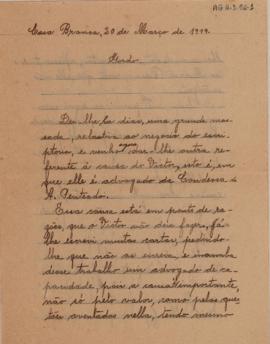 AG II.3.96-1
Casa Branca, 20 de Março de 1919.
Dei-lhe, ha dias, uma grande mas-
sada, relativa ao negocio do escri-
ptorio, e venho, agora, dar-lhe outra
referente á causa do Victor, isto é, em
que elle é advogado da Condessa de
A. Penteado.
Essa causa está em ponto de ra-
zões, que o Victor não dóis fazer, já
lhe escrevi muitas cartas, pedindo-
lhe que não as escreva, e incumba
desse trabalho um advogado de ca-
pacidade, pois a causa é importante,
não só pelo valor, como pelas ques-
tões aventadas nella, tendo mesmo